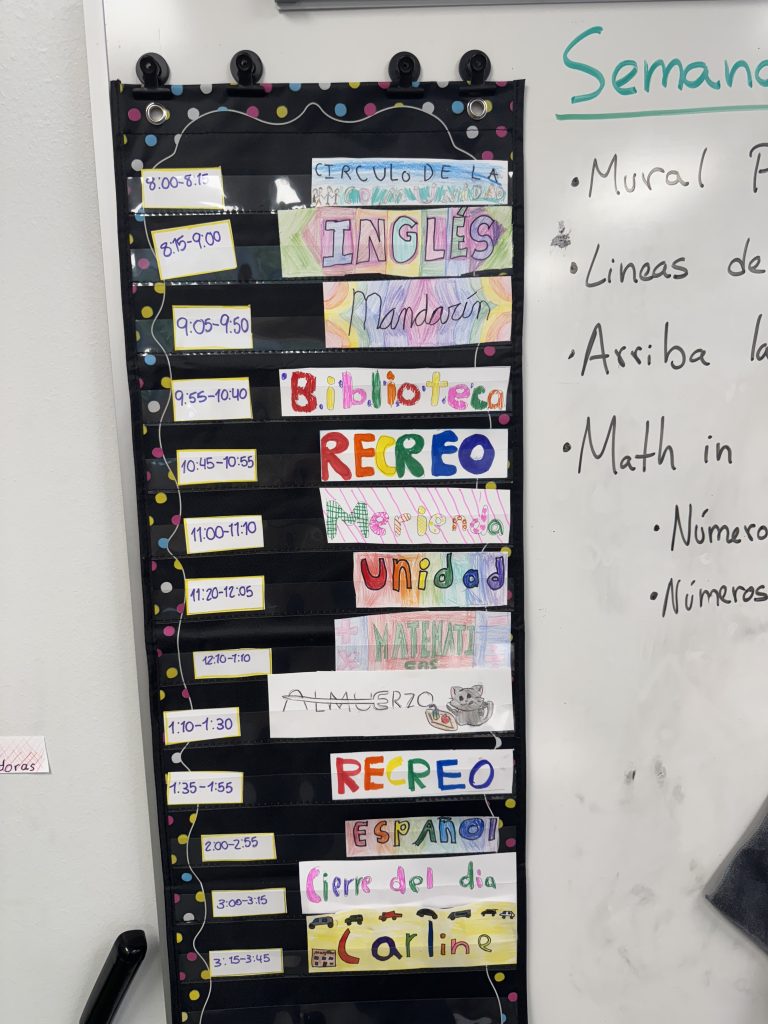 8:00-8:15 CIRCULO DE LA COMUNIDAD
8:15-9:00 INGLÉS
9:05-9:50 Mandarín
9:55-10:40 Biblioteca
10:45-10:55 RECREO
11:00-11:10 Merienda
11:20-12:05 Unidad
12:10-1:10 MATEMATICAS
1:10-1:30 ALMUERZO
1:35-1:55 RECREO
2:00-2:55 ESPAÑOl
3:00-3:15 Cierre del dia
3:15-3:45 Carline
doras
Semana
• Mural P
• Lineas de
• Arriba la
• Math in
• Número
• Números